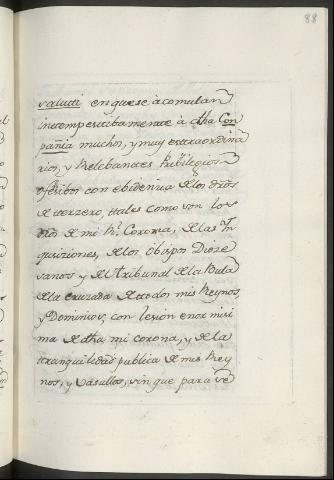 88
valutti en que se acomulan
intempestibamente â dha Com
pañia muchos, y muy extraordina
rios, y Relebantes Pribilegios
ofesibos con ebidencia de los dros
de terzero, tales como son los
dros de mi Rl. Corona, de las In
quisiziones, de los Obispos Dioze
sanos y del Tribunal de la Bula
de la Cruzada de todos mis Reynos,
y Dominios, con lesion enormisi
ma de dha mi corona, y de la
tranquilidad publica de mis Rey
nos, y Vasallos, sin que para se